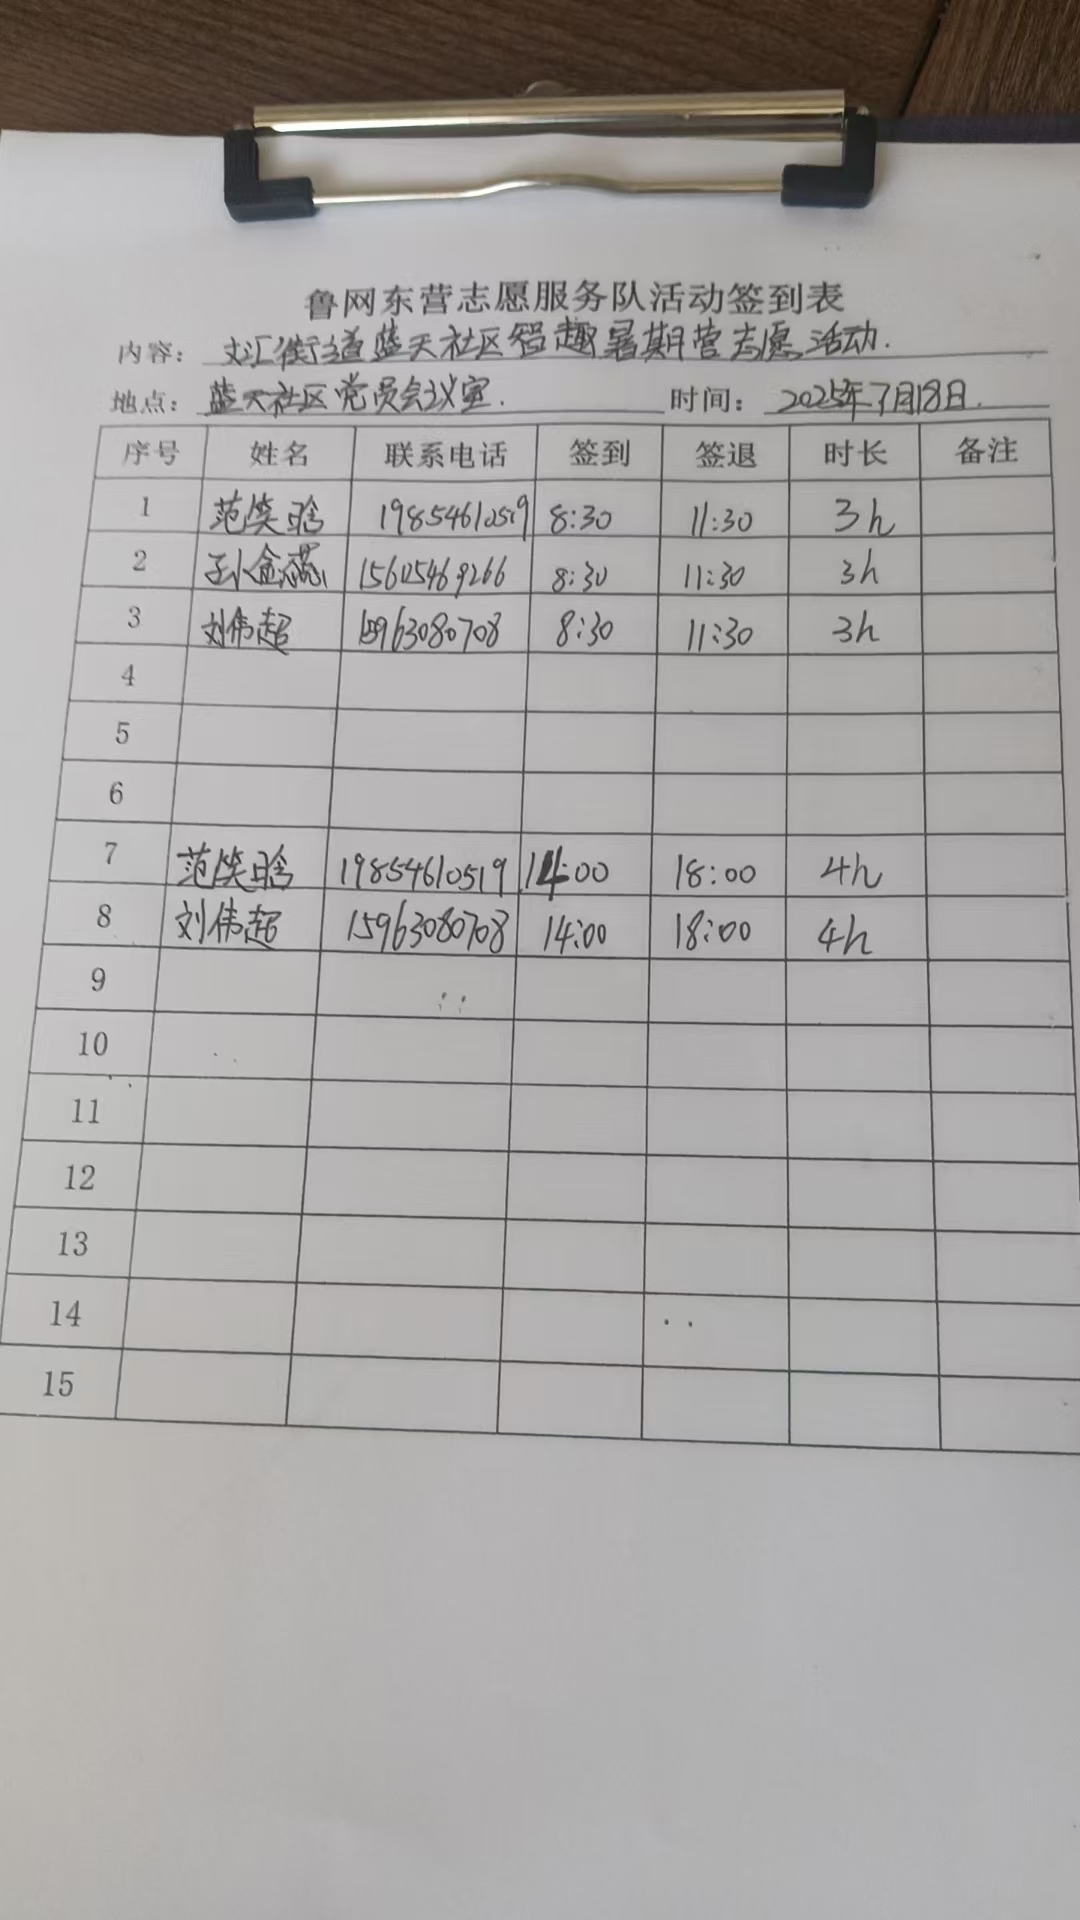 鲁网东营志愿服务队活动签到表
内容: 文汇街道蓝天社区智趣暑期营志愿活动.
地点: 蓝天社区党员会议室. 时间: 2025年7月18日.
序号 姓名 联系电话 签到 签退 时长 备注
1 范笑晗 19854610519 8:30 11:30 3h
2 15605469266 8:30 11:30 3h
3 刘伟超 15963080708 8:30 11:30 3h
4
5
6
7 范笑晗 19854610519 14:00 18:00 4h
8 刘伟超 15963080708 14:00 18:00 4h
9
10
11
12
13
14
15